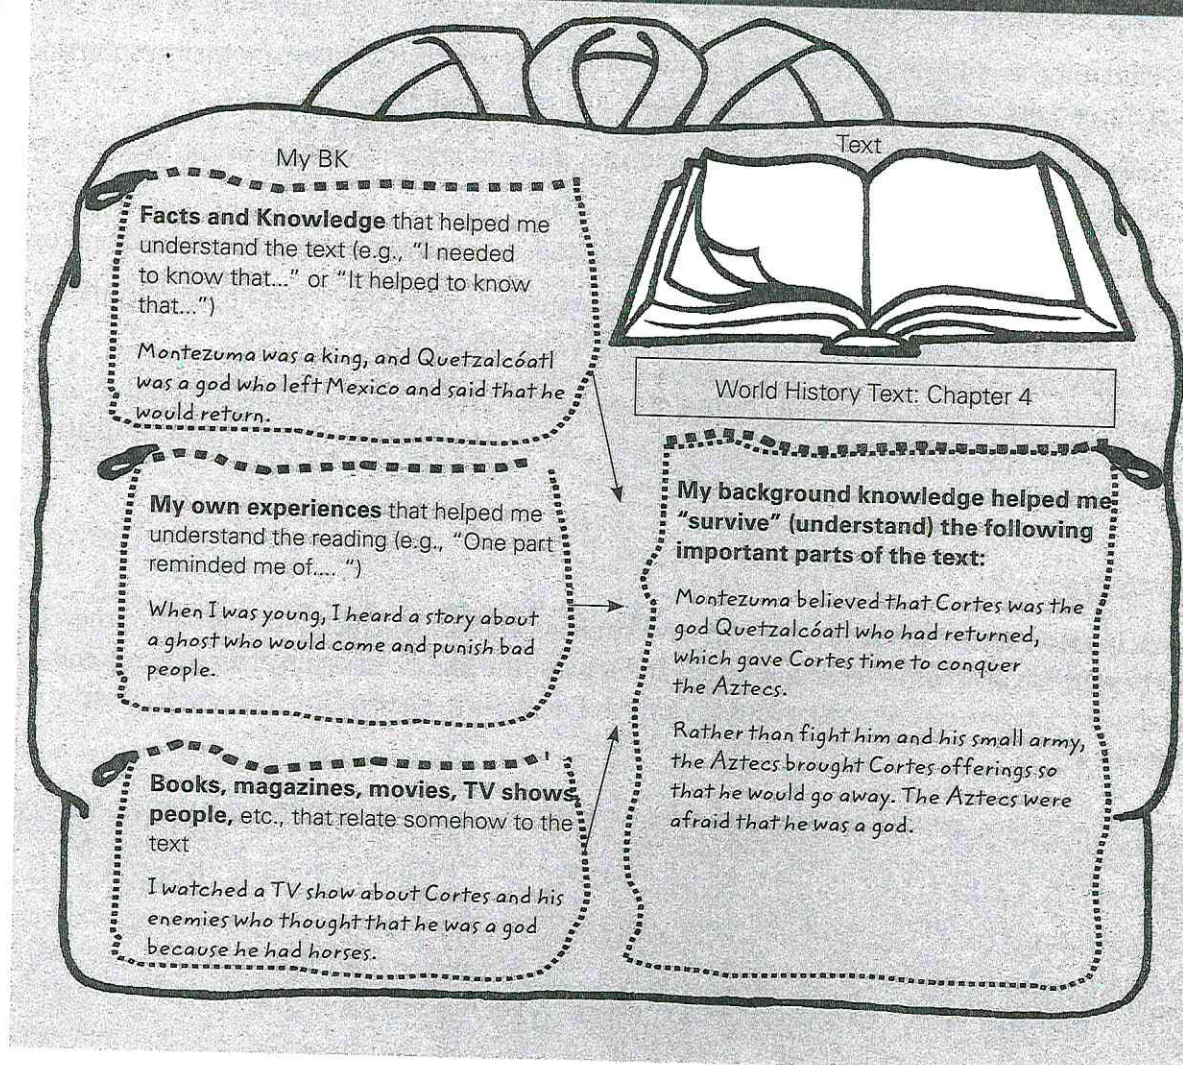 My BK
Facts and Knowledge that helped me
understand the text (e.g., “I needed
to know that...” or “It helped to know
that...”)
Montezuma was a king, and Quetzalcóatl
was a god who left Mexico and said that he
would return.
My own experiences that helped me
understand the reading (e.g., “One part
reminded me of.... ”)
When I was young, I heard a story about
a ghost who would come and punish bad
people.
Books, magazines, movies, TV shows,
people, etc., that relate somehow to the
text
I watched a TV show about Cortes and his
enemies who thought that he was a god
because he had horses.
Text
World History Text: Chapter 4
My background knowledge helped me
“survive” (understand) the following
important parts of the text:
Montezuma believed that Cortes was the
god Quetzalcóatl who had returned,
which gave Cortes time to conquer
the Aztecs.
Rather than fight him and his small army,
the Aztecs brought Cortes offerings so
that he would go away. The Aztecs were
afraid that he was a god.